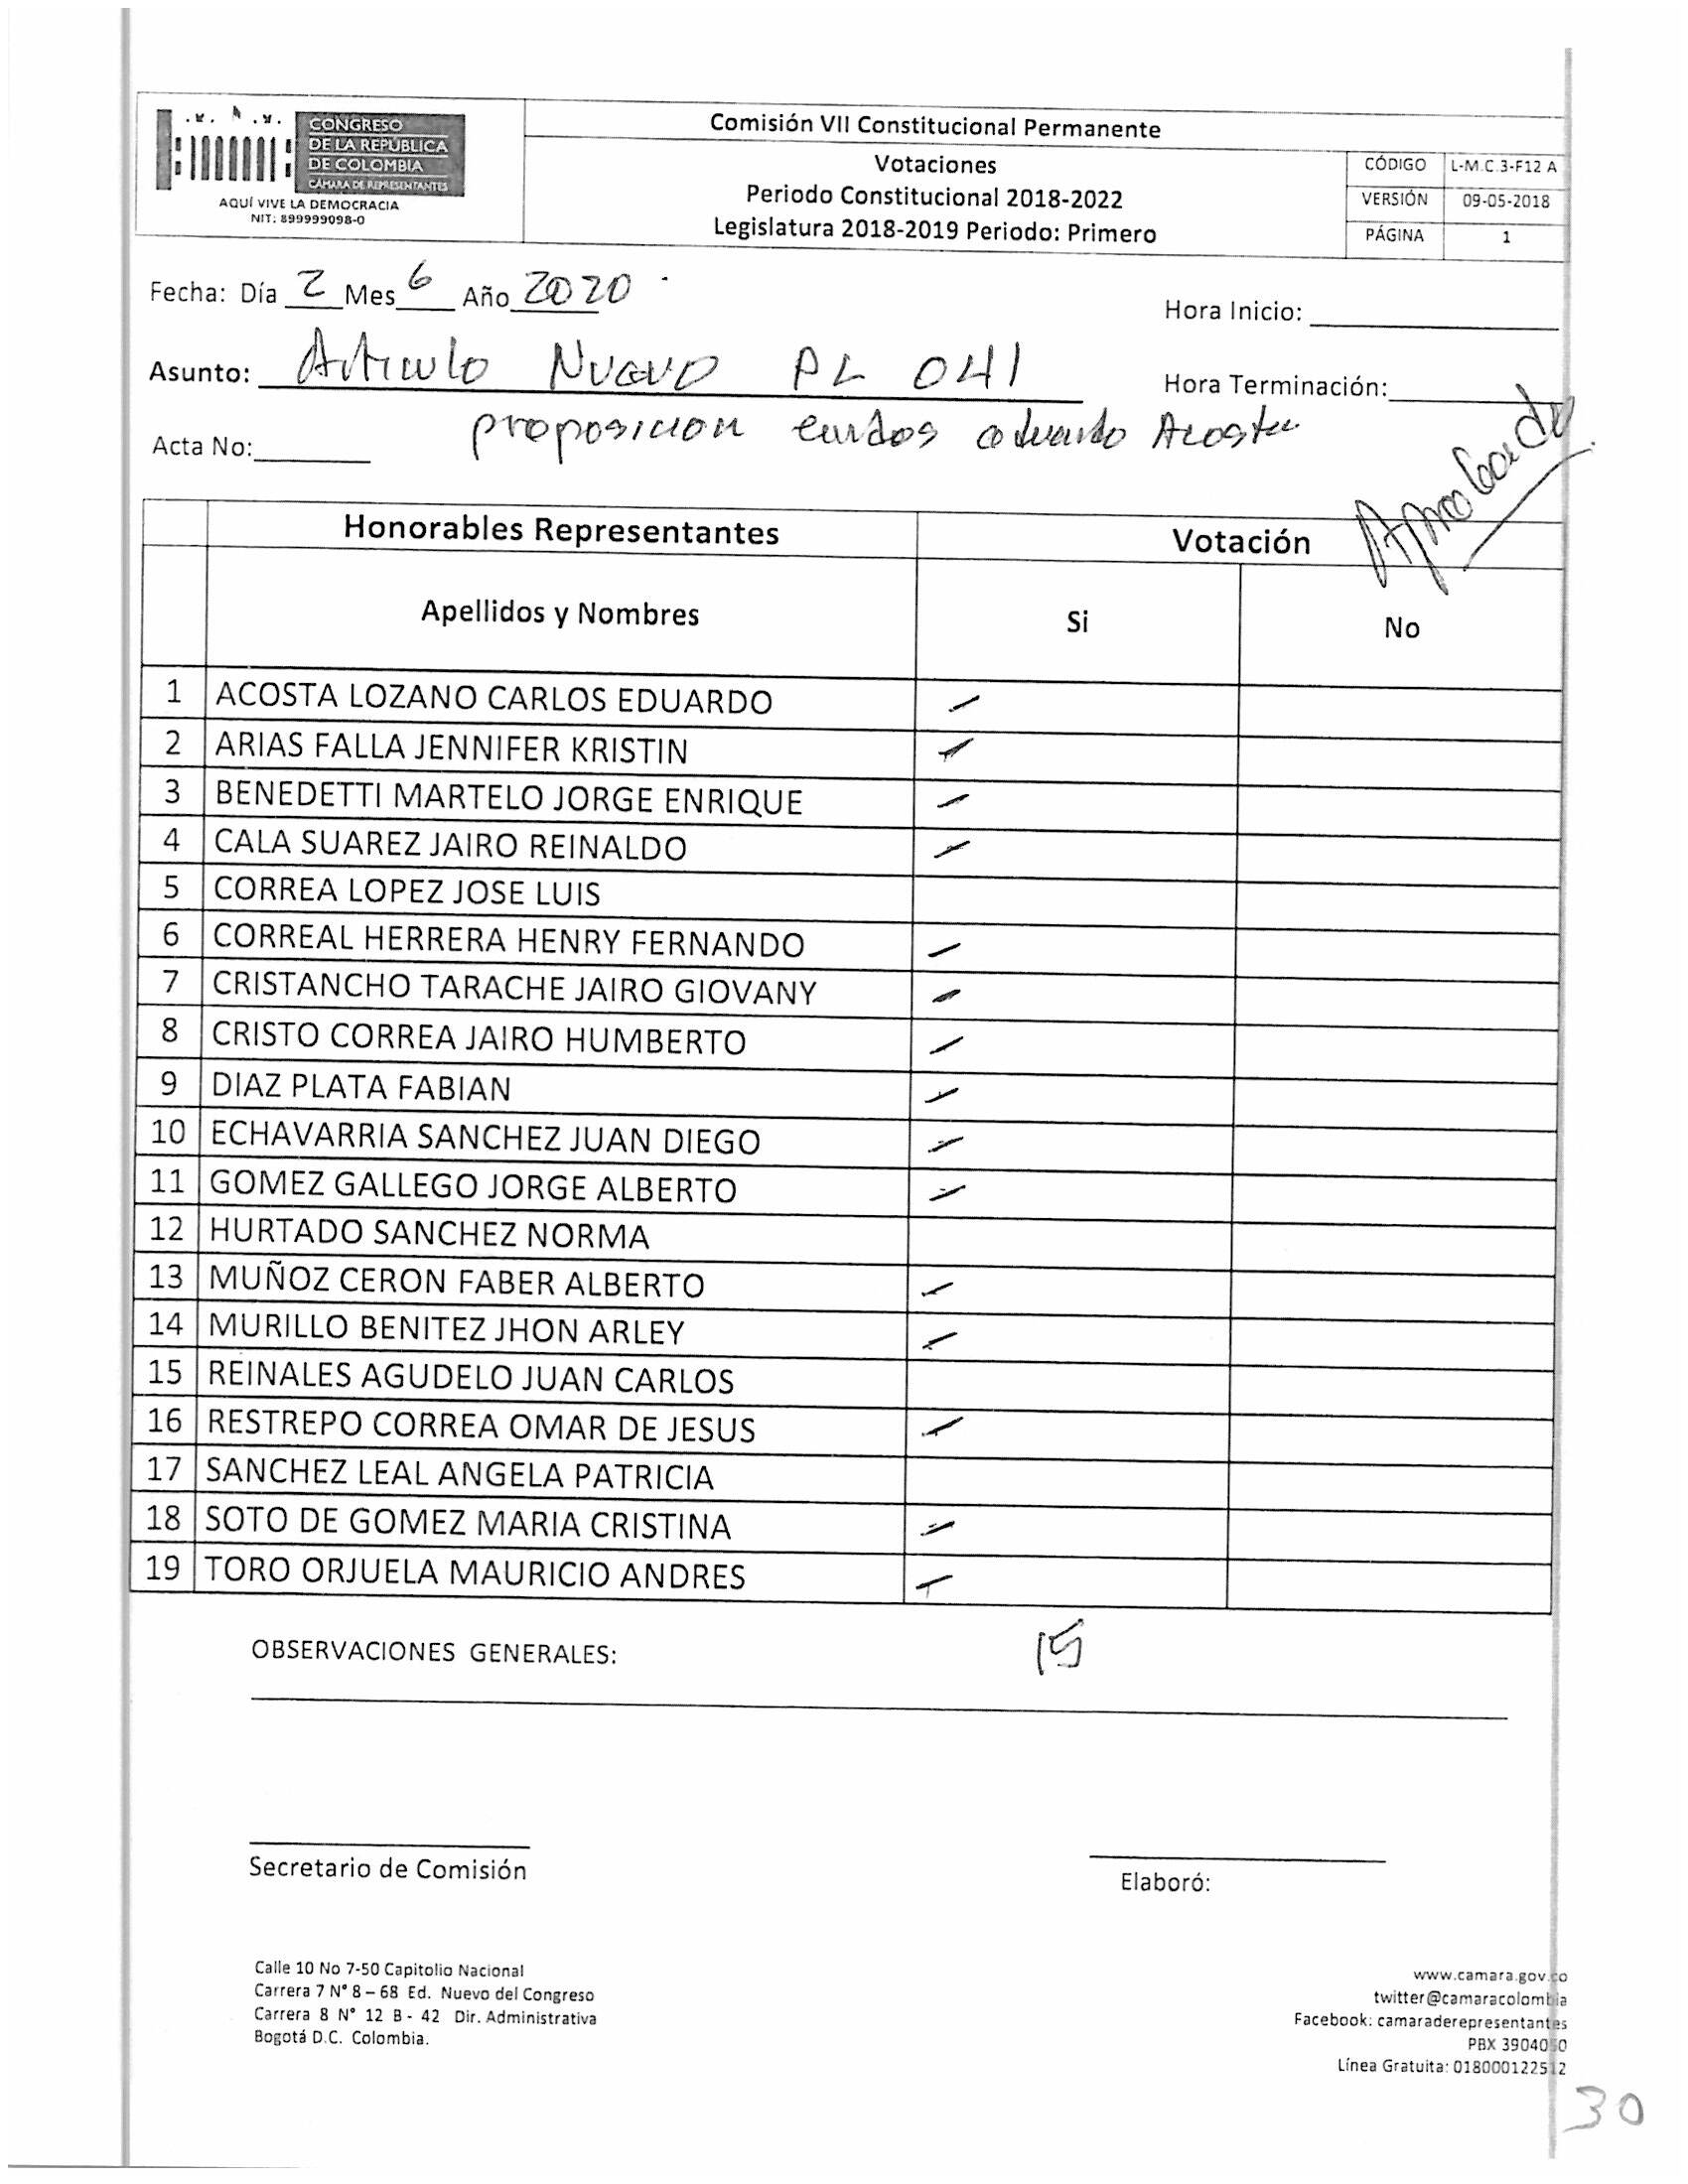 CONGRESO
DE LA REPÚBLICA
DE COLOMBIA
CÁMARA DE REPRESENTANTES
AQUÍ VIVE LA DEMOCRACIA
NIT: 899999098-0
Comisión VII Constitucional Permanente
Votaciones
Periodo Constitucional 2018-2022
Legislatura 2018-2019 Periodo: Primero
CÓDIGO L-M.C.3-F12 A
VERSIÓN 09-05-2018
PÁGINA 1
Fecha: Día 2 Mes 6 Año 2020
Hora Inicio:
Asunto: Articulo Nuevo PL 041
Hora Terminación:
proposicion Carlos eduardo Acosta
Acta No:
Aprobado
Honorables Representantes Votación
Apellidos y Nombres Si No
1 ACOSTA LOZANO CARLOS EDUARDO
2 ARIAS FALLA JENNIFER KRISTIN
3 BENEDETTI MARTELO JORGE ENRIQUE
4 CALA SUAREZ JAIRO REINALDO
5 CORREA LOPEZ JOSE LUIS
6 CORREAL HERRERA HENRY FERNANDO
7 CRISTANCHO TARACHE JAIRO GIOVANY
8 CRISTO CORREA JAIRO HUMBERTO
9 DIAZ PLATA FABIAN
10 ECHAVARRIA SANCHEZ JUAN DIEGO
11 GOMEZ GALLEGO JORGE ALBERTO
12 HURTADO SANCHEZ NORMA
13 MUÑOZ CERON FABER ALBERTO
14 MURILLO BENITEZ JHON ARLEY
15 REINALES AGUDELO JUAN CARLOS
16 RESTREPO CORREA OMAR DE JESUS
17 SANCHEZ LEAL ANGELA PATRICIA
18 SOTO DE GOMEZ MARIA CRISTINA
19 TORO ORJUELA MAURICIO ANDRES
OBSERVACIONES GENERALES: 15
Secretario de Comisión
Elaboró:
Calle 10 No 7-50 Capitolio Nacional
Carrera 7 N° 8 – 68 Ed. Nuevo del Congreso
Carrera 8 N° 12 B - 42 Dir. Administrativa
Bogotá D.C. Colombia.
www.camara.gov.co
twitter@camaracolombia
Facebook: camaraderepresentantes
PBX 3904050
Línea Gratuita: 018000122512
30